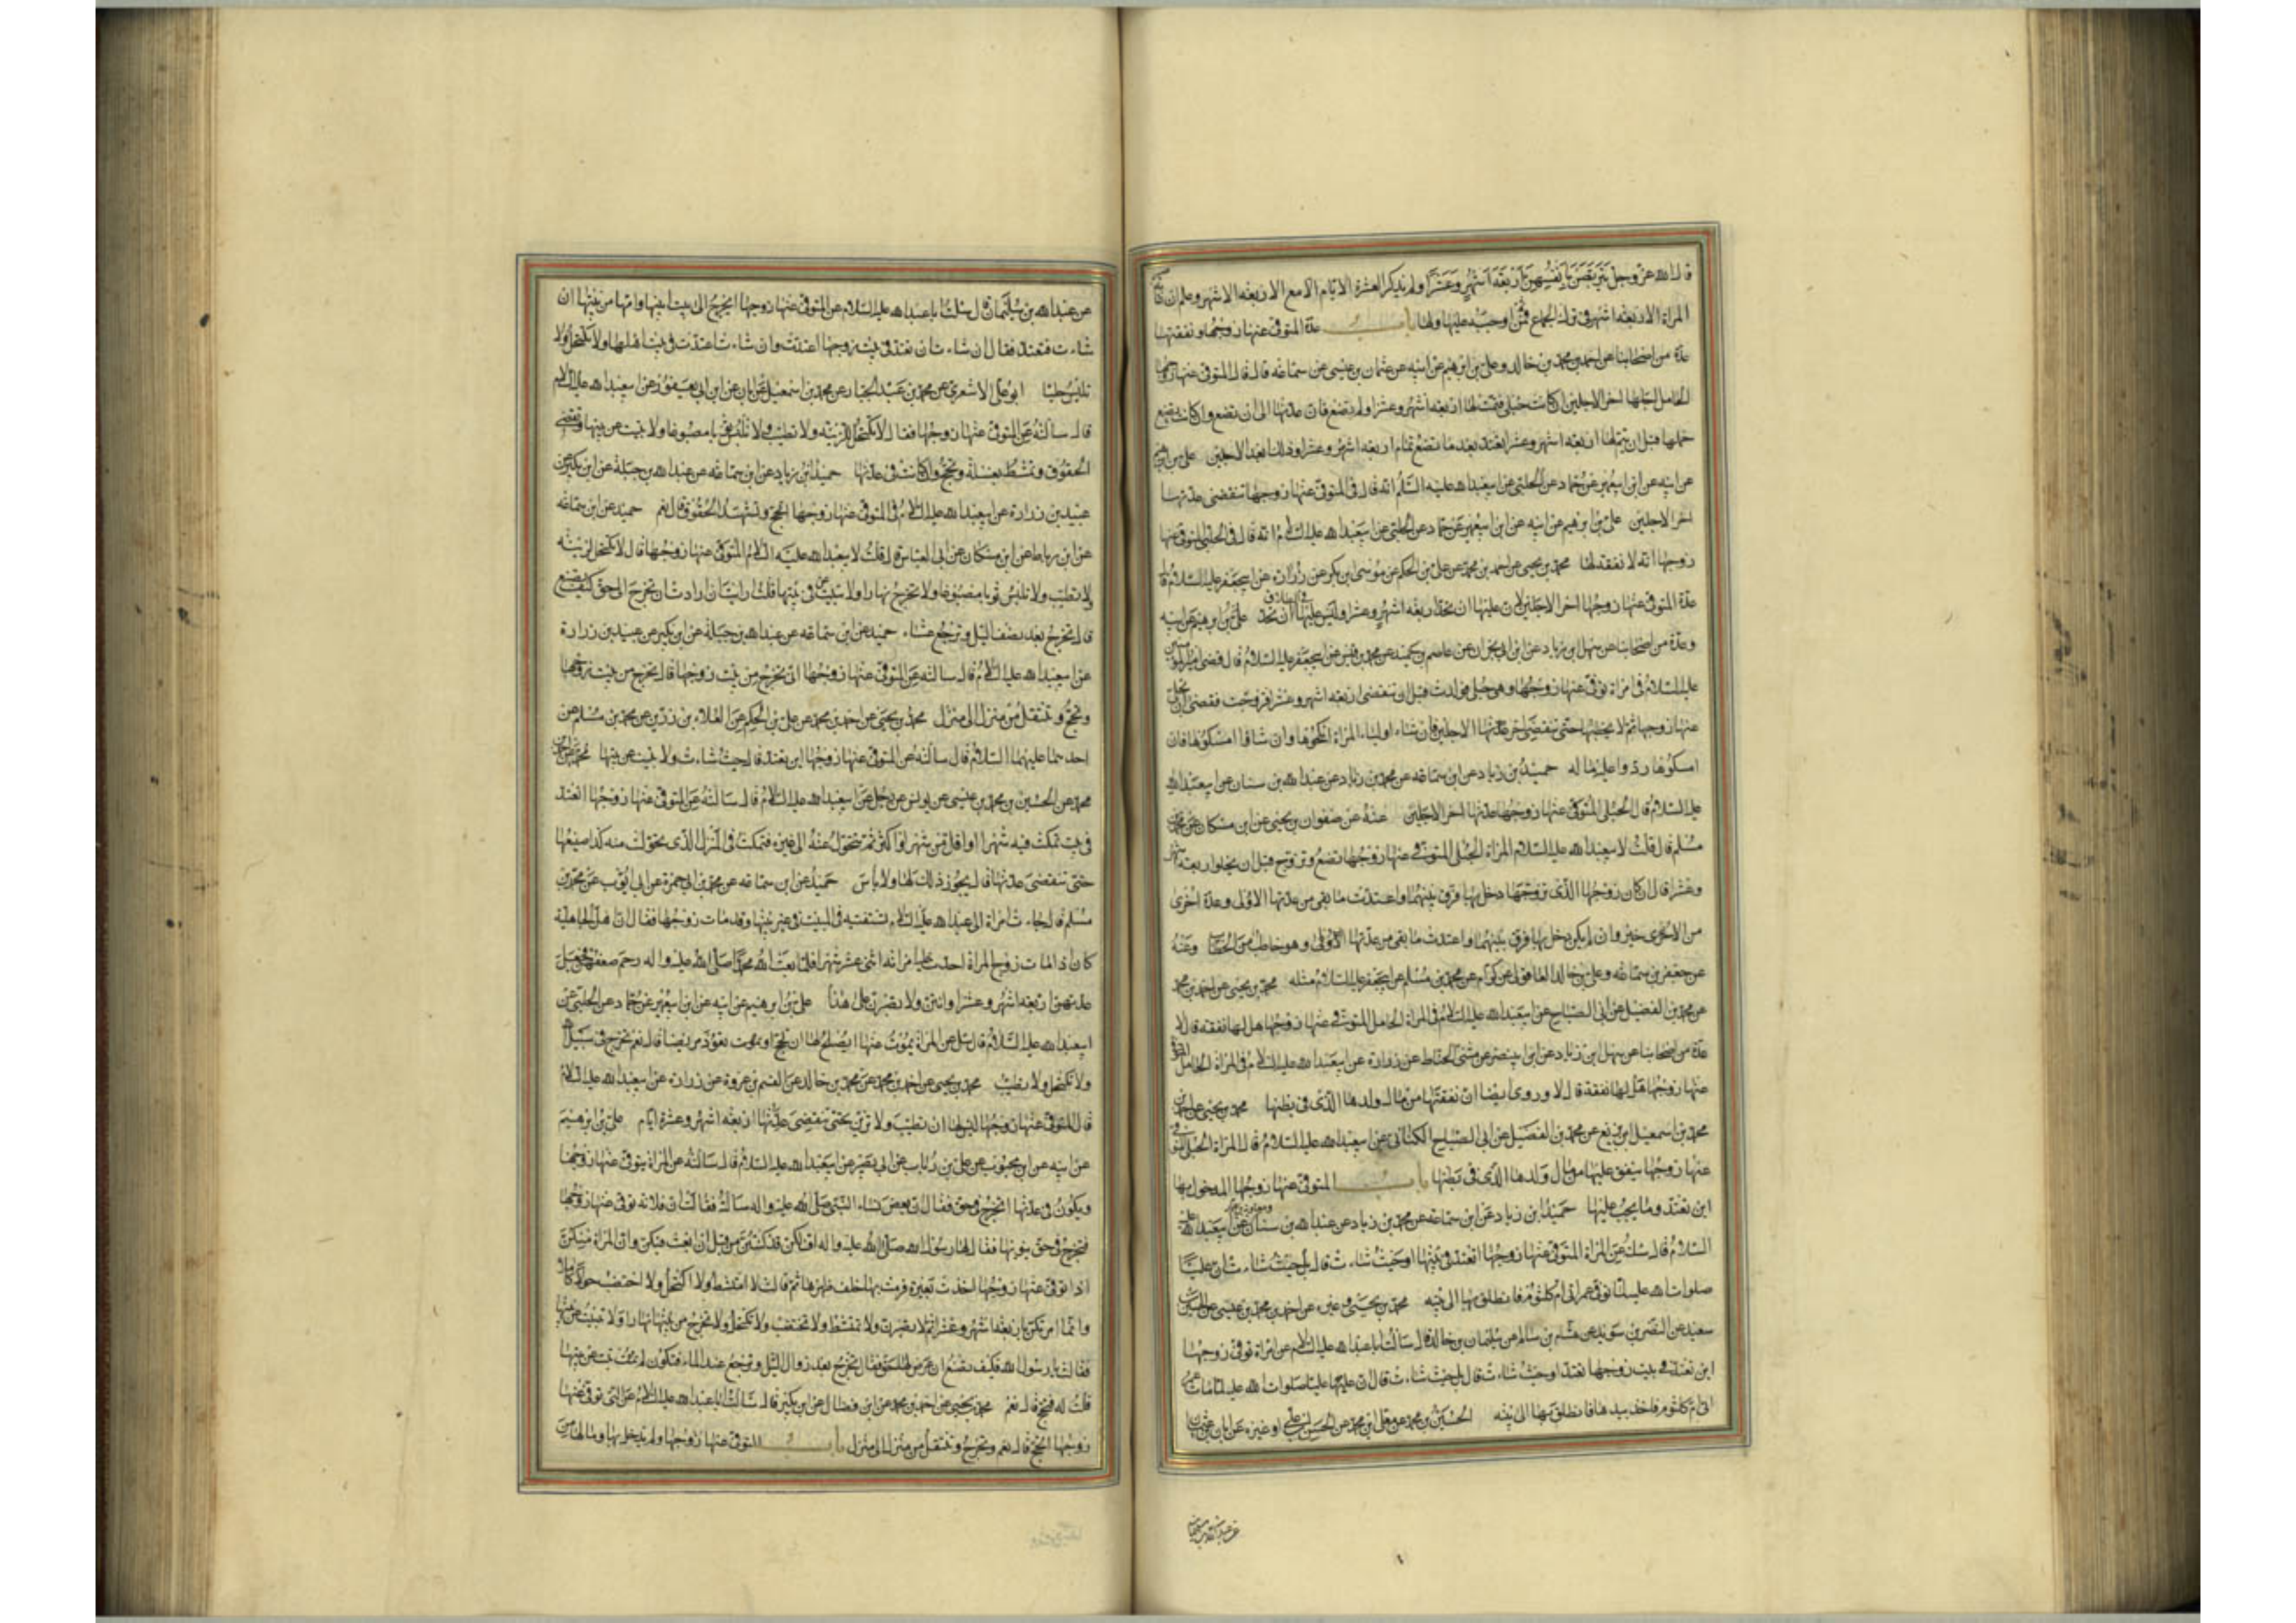 قال الله عز وجل يتربصن بانفسهن اربعة اشهر وعشرا ولم يذكر العشرة الايام الا مع الاربعة الاشهر وعلم ان
المراة الاربعة اشهر فى ترك الجماع فمن ثم اوجبه عليها ولها باب عدة المتوفى عنها زوجها ونفقتها
عدة من اصحابنا عن احمد بن محمد بن خالد وعلى بن ابرهيم عن ابيه عن عثمان بن عيسى عن سماعه قال قال المتوفى عنها زوجها
الحامل اجلها اخر الاجلين ان كانت حبلى فتمت لها اربعة اشهر وعشرا ولم تضع فان عدتها الى ان تضع وان كانت تضع
حملها قبل ان يتم لها اربعة اشهر وعشرا تعتد بعد ما تضع تمام اربعة اشهر وعشرا وذلك ابعد الاجلين على بن ابرهيم
عن ابيه عن ابن ابيعمير عن حماد عن الحلبى عن ابيعبد الله عليه السلم انه قال فى المتوفى عنها زوجها تنقضى عدتها
اخر الاجلين على بن ابرهيم عن ابيه عن ابن ابيعمير عن حماد عن الحلبى عن ابيعبد الله عليه السلام انه قال فى الحبلى المتوفى عنها
زوجها انه لا نفقة لها محمد بن يحيى عن احمد بن محمد عن على بن الحكم عن موسى بن بكر عن زرارة عن ابيجعفر عليه السلام قال
عدة المتوفى عنها زوجها اخر الاجلين لان عليها ان تحد اربعة اشهر وعشرا وليس عليها فى الطلاق ان تحد على بن ابرهيم عن ابيه
وعدة من اصحابنا عن سهل بن زياد عن ابن ابى نجران عن عاصم بن حميد عن محمد بن قيس عن ابيجعفر عليه السلام قال قضى امير المؤمنين
عليه السلام فى امراة توفى عنها زوجها وهى حبلى فولدت قبل ان تنقضى اربعة اشهر وعشرا فتزوجت فقضى ان يخلى
عنها زوجها ثم لا يخطبها حتى تنقضى اخر الاجلين فان شاء اولياء المراة انكحوها وان شاؤا امسكوها فان
امسكوها ردوا عليه ماله حميد بن زياد عن ابن سماعه عن محمد بن زياد عن عبد الله بن سنان عن ابيعبد الله
عليه السلام قال الحبلى المتوفى عنها زوجها عدتها اخر الاجلين عنه عن صفوان بن يحيى عن ابن مسكان عن محمد بن
مسلم قال قلت لابيعبد الله عليه السلام المراة الحبلى المتوفى عنها زوجها تضع وتزوج قبل ان يخلو اربعة اشهر
وعشرا قال ان كان زوجها الذى تزوجها دخل بها فرق بينهما واعتدت ما بقى من عدتها الاولى وعدة اخرى
من الاخير وان لم يكن دخل بها فرق بينهما واعتدت ما بقى من عدتها الاولى وهو خاطب من الخطاب وعنه
عن جعفر بن سماعه وعلى بن خالد العاقولى عن كرام عن محمد بن مسلم عن ابيجعفر عليه السلام مثله محمد بن يحيى عن احمد بن محمد
عن محمد بن الفضيل عن ابى الصباح عن ابيعبد الله عليه السلام فى المراة الحامل المتوفى عنها زوجها هل لها نفقة قال لا
عدة من اصحابنا عن سهل بن زياد عن ابن ابينصر عن مثنى الحناط عن زرارة عن ابيعبد الله عليه السلام فى المراة الحامل المتوفى
عنها زوجها هل لها نفقة قال لا وروى ايضا ان نفقتها من مال ولدها الذى فى بطنها محمد بن يحيى عن احمد بن
محمد بن اسمعيل بن بزيع عن محمد بن الفضيل عن ابى الصباح الكنانى عن ابيعبد الله عليه السلام قال المراة الحبلى المتوفى
عنها زوجها ينفق عليها من مال ولدها الذى فى بطنها باب المتوفى عنها زوجها المدخول بها
اين تعتد وما يجب عليها حميد بن زياد عن ابن سماعه عن محمد بن زياد عن عبد الله بن سنان ومعوية بن عمار عن ابيعبد الله عليه
السلام قال سئلته عن المراة المتوفى عنها زوجها اتعتد فى بيتها او حيث شاءت قال بل حيث شاءت ان عليا
صلوات الله عليه لما توفى عمر اتى ام كلثوم فانطلق بها الى بيته محمد بن يحيى وغيره عن احمد بن محمد بن عيسى عن الحسين بن
سعيد عن النضر بن سويد عن هشام بن سالم عن سليمان بن خالد قال سالت ابا عبد الله عليه السلام عن امراة توفى زوجها
اين تعتد فى بيت زوجها تعتد او حيث شاءت قال بل حيث شاءت ثم قال ان عليا صلوات الله عليه لما مات عمر
اتى ام كلثوم فاخذ بيدها فانطلق بها الى بيته الحسين بن محمد عن معلى بن محمد عن الحسن بن على او غيره عن ابان بن عثمان
عن عبد الله بن سليمان
عن عبد الله بن سليمان قال سئلت ابا عبد الله عليه السلام عن المتوفى عنها زوجها اتخرج الى بيت ابيها وامها من بيتها ان
شاءت فتعتد فقال ان شاءت ان تعتد فى بيت زوجها اعتدت وان شاءت اعتدت فى بيت اهلها ولا تكتحل ولا
تلبس حليا ابو على الاشعرى عن محمد بن عبد الجبار عن محمد بن اسمعيل عن ابان عن ابن ابى يعفور عن ابيعبد الله عليه السلام
قال سالته عن المتوفى عنها زوجها فقال لا تكتحل للزينه ولا تطيب ولا تلبس ثوبا مصبوغا ولا تبيت عن بيتها وتقضى
الحقوق وتمتشط بغسلة وتحج وان كانت فى عدتها حميد بن زياد عن ابن سماعه عن عبد الله بن جبلة عن ابن بكير عن
عبيد بن زرارة عن ابيعبد الله عليه السلام فى المتوفى عنها زوجها اتحج وتشهد الحقوق قال نعم حميد عن ابن سماعه
عن ابن رباط عن ابن مسكان عن ابى العباس قال قلت لابيعبد الله عليه السلام المتوفى عنها زوجها قال لا تكتحل لزينة
ولا تطيب ولا تلبس ثوبا مصبوغا ولا تخرج نهارا ولا تبيت عن بيتها قلت ارايت ان ارادت ان تخرج الى حق كيف تصنع
قال تخرج بعد نصف الليل وترجع عشاء حميد عن ابن سماعه عن عبد الله بن جبلة عن ابن بكير عن عبيد بن زرارة
عن ابيعبد الله عليه السلام قال سالته عن المتوفى عنها زوجها اتخرج من بيت زوجها قال تخرج من بيت زوجها
وتحج وتنتقل من منزل الى منزل محمد بن يحيى عن احمد بن محمد عن على بن الحكم عن العلاء بن رزين عن محمد بن مسلم عن
احدهما عليهما السلام قال سالته عن المتوفى عنها زوجها اين تعتد قال حيث شاءت ولا تبيت عن بيتها محمد بن احمد عن
محمد بن الحسين بن محمد بن عيسى عن يونس عن رجل عن ابيعبد الله عليه السلام قال سالته عن المتوفى عنها زوجها اتعتد
فى بيت تمكث فيه شهرا او اقل من شهر او اكثر ثم تتحول عنه الى غيره فتمكث فى المنزل الذى تحولت منه كذا صنيعها
حتى تنقضى عدتها قال يجوز ذلك لها ولا باس حميد عن ابن سماعه عن محمد بن ابى حمزة عن ابى ايوب عن محمد بن
مسلم قال جاءت امراة الى عبد الله عليه السلام تستفتيه فى المبيت فى غير بيتها وقد مات زوجها فقال ان اهل الجاهلية
كان اذا مات زوج المراة احدت عليه امراته اثنى عشر شهرا فلما بعث الله محمدا صلى الله عليه واله رحم ضعفهن فجعل
عدتهن اربعة اشهر وعشرا وانتن لا تصبرن على هذا على بن ابرهيم عن ابيه عن ابن ابيعمير عن حماد عن الحلبى عن
ابيعبد الله عليه السلام قال سئل عن المراة يموت عنها ايصلح لها ان تحج او تعود مريضا قال نعم تخرج فى سبيل الله
ولا تكتحل ولا تطيب محمد بن يحيى عن احمد بن محمد عن محمد بن خالد عن القسم بن عروة عن زرارة عن ابيعبد الله عليه السلام
قال المتوفى عنها زوجها ليس لها ان تطيب ولا تزين حتى تنقضى عدتها اربعة اشهر وعشرة ايام على بن ابرهيم
عن ابيه عن ابن محبوب عن على بن رئاب عن ابى بصير عن ابيعبد الله عليه السلام قال سالته عن المراة يتوفى عنها زوجها
وتكون فى عدتها اتخرج فى حق فقال ان بعض نساء النبى صلى الله عليه واله سالته فقالت ان فلانه توفى عنها زوجها
فتخرج فى حق ينوبها فقال لها رسول الله صلى الله عليه واله اف لكن قد كنتن من قبل ان ابعث فيكن وان المراة منكن
اذا توفى عنها زوجها اخذت بعرة فرمت بها خلف ظهرها ثم قالت لا امتشط ولا اكتحل ولا اختضب حولا كاملا
وانما امرتكن باربعة اشهر وعشرا ثم لا تصبرن ولا تمتشط ولا تختضب ولا تكتحل ولا تخرج من بيتها نهارا ولا تبيت عن بيتها
فقالت يا رسول الله فكيف تصنع ان عرض لها حق فقال تخرج بعد زوال الليل وترجع عند المساء فتكون لم تبت عن بيتها
قلت له فتحج قال نعم محمد بن يحيى عن احمد بن محمد عن ابن فضال عن ابن بكير قال سالت ابا عبد الله عليه السلام عن التى توفى عنها
زوجها اتحج قال نعم وتخرج وتنتقل من منزل الى منزل باب المتوفى عنها زوجها ولم يدخل بها وما لها من